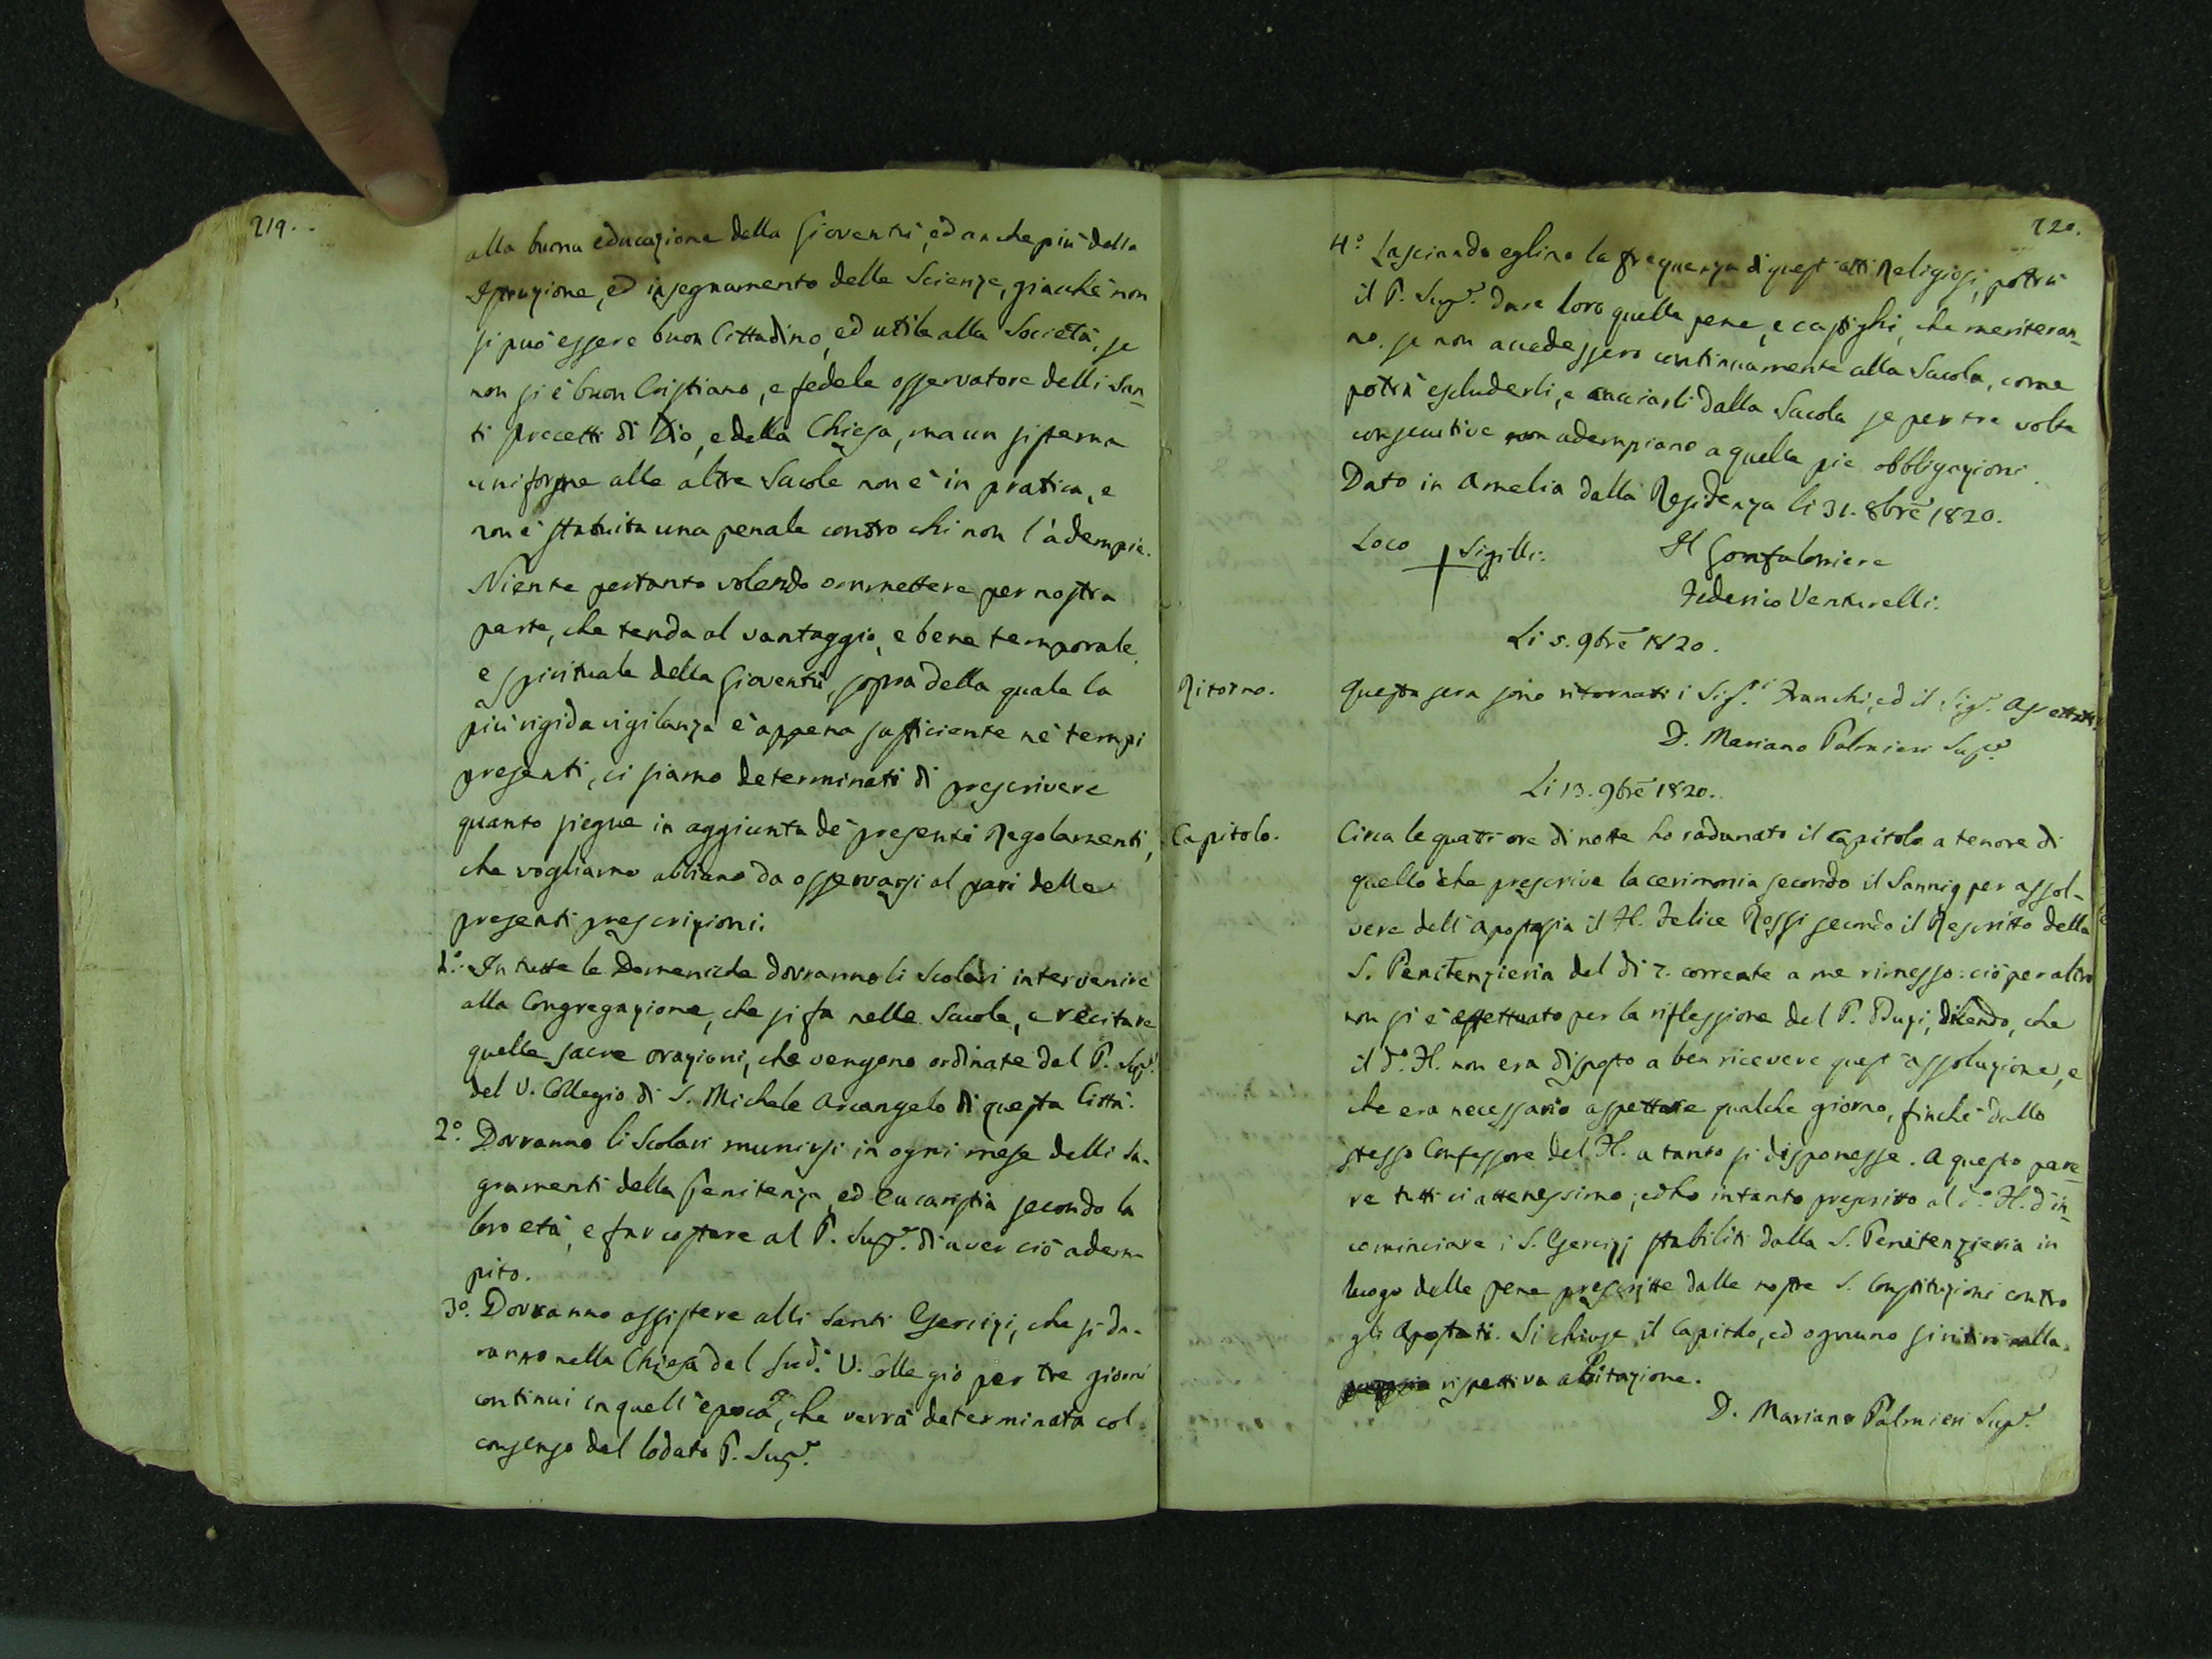 219.
alla buona educazione della Gioventù, ed anche più della
Istruzione, ed insegnamento delle Scienze, giacchè non
si può essere buon Cittadino, ed utile alla Società, se
non si è buon Cristiano, e fedele osservatore delli San-
ti precetti di Dio, e della Chiesa, ma un sistema
uniforme alle altre Scuole non è in pratica, e
non è statuita una penale contro chi non l'adempie.
Niente pertanto volendo ommettere per nostra
parte, che tenda al vantaggio, e bene temporale,
e spirituale della Gioventù, sopra della quale la
più rigida vigilanza è appena sufficiente ne' tempi
presenti, ci siamo determinati di prescrivere
quanto siegue in aggiunta de' presenti Regolamenti,
che vogliamo abbiano da osservarsi al pari delle
presenti prescrizioni.
1.° In tutte le Domeniche dovranno li Scolari intervenire
alla Congregazione, che si fa nelle Scuole, e recitare
quelle sacre orazioni, che vengono ordinate dal P. Sup.r
del V. Collegio di S. Michele Arcangelo di questa Città.
2.° Dovranno li Scolari munirsi in ogni mese delli Sa-
gramenti della Penitenza, ed Eucaristia secondo la
loro età, e far costare al P. Sup.r di aver ciò adem-
pito.
3.° Dovranno assistere alli Santi Esercizi, che si da-
ranno nella Chiesa del Sud.° V. Collegio per tre giorni
continui in quell'epoca, che verrà determinata col
consenso del lodato P. Sup.r
220.
4.° Lascinado eglino la frequenza di quest'atti Religiosi, potrà
il P. Sup.r dare loro quelle pene, e castighi, che meriteran-
no, se non accedessero continuamente alla Scuola, come
potrà escluderli, e cacciarli dalla Scuola se per tre volte
consecutive non adempiano a quelle pie obbligazioni.
Dato in Amelia dalla Residenza li 31. 8bre 1820.
Loco + Sigilli. Il Gonfaloniere
Federico Venturelli.
Li 5. 9bre 1820.
Ritorno. Questa sera sono ritornati i Sig.ri Franchi, ed il Sig.r
D. Mariano Palmieri Sup.r
Li 13. 9bre 1820.
Capitolo. Circa le quattr'ore di notte ho radunato il Capitolo a tenore di
quello che prescrive la cerimonia secondo il Sannig per assol-
vere dell'Apostasia il H. Felice Rossi secondo il Rescritto della
S. Penitenzieria del dì 7. corrente a me rimesso: ciò per altro
non si è effettuato per la riflessione del P. dicendo, che
il d.° H. non era disposto a ben ricevere quest'assoluzione, e
che era necessario aspettare qualche giorno, finchè dallo
stesso Confessore del H. a tanto si disponesse. A questo pare-
re tutti ci attenessimo; ed ho intanto prescritto al d.° H. d'in-
cominciare i S. Esercizj stabiliti dalla S. Penitenzieria in
luogo delle pene prescritte dalle nostre S. Constituzioni contro
gli Apostati. Si chiuse il Capitolo, ed ognuno si ritirò nella
rispettiva abitazione.
D. Mariano Palmieri Sup.r